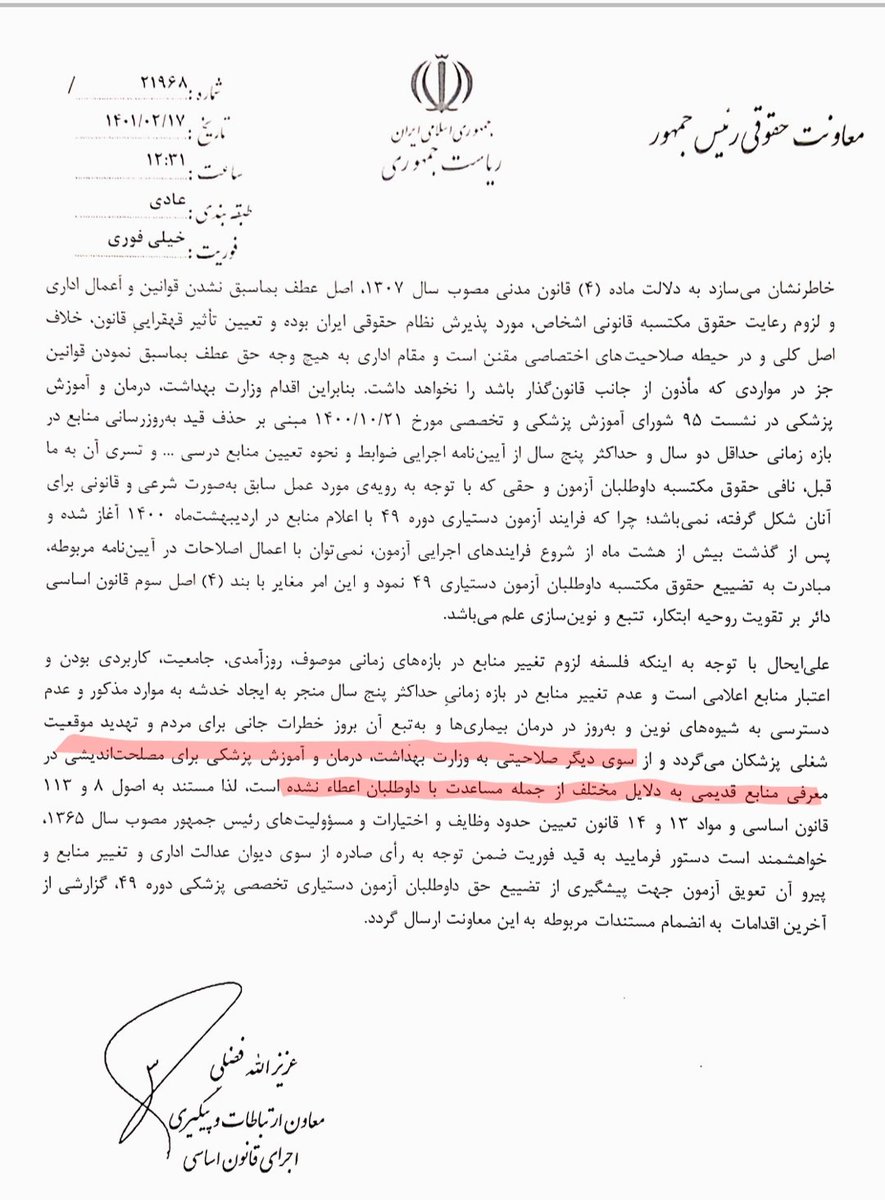 معاونت حقوقی رئیس جمهور
جمهوری اسلامی ایران
ریاست جمهوری
شماره: ۲۱۹۶۸ /
تاریخ: ۱۴۰۱/۰۲/۱۷
ساعت: ۱۲:۳۱
طبقه بندی: عادی
فوریت: خیلی فوری
خاطرنشان می‌سازد به دلالت ماده (۴) قانون مدنی مصوب سال ۱۳۰۷، اصل عطف بماسبق نشدن قوانین و أعمال اداری
و لزوم رعایت حقوق مکتسبه قانونی اشخاص، مورد پذیرش نظام حقوقی ایران بوده و تعیین تأثیر قهقرایی قانون، خلاف
اصل کلی و در حیطه صلاحیت‌های اختصاصی مقنن است و مقام اداری به هیچ وجه حق عطف بماسبق نمودن قوانین
جز در مواردی که مأذون از جانب قانون‌گذار باشد را نخواهد داشت. بنابراین اقدام وزارت بهداشت، درمان و آموزش
پزشکی در نشست ۹۵ شورای آموزش پزشکی و تخصصی مورخ ۱۴۰۰/۱۰/۲۱ مبنی بر حذف قید به‌روزرسانی منابع در
بازه زمانی حداقل دو سال و حداکثر پنج سال از آیین‌نامه اجرایی ضوابط و نحوه تعیین منابع درسی ... و تسری آن به ما
قبل، نافی حقوق مکتسبه داوطلبان آزمون و حقی که با توجه به رویه‌ی مورد عمل سابق به‌صورت شرعی و قانونی برای
آنان شکل گرفته، نمی‌باشد؛ چرا که فرایند آزمون دستیاری دوره ۴۹ با اعلام منابع در اردیبهشت‌ماه ۱۴۰۰ آغاز شده و
پس از گذشت بیش از هشت ماه از شروع فرایندهای اجرایی آزمون، نمی‌توان با اعمال اصلاحات در آیین‌نامه مربوطه،
مبادرت به تضییع حقوق مکتسبه داوطلبان آزمون دستیاری ۴۹ نمود و این امر مغایر با بند (۴) اصل سوم قانون اساسی
دائر بر تقویت روحیه ابتکار، تتبع و نوین‌سازی علم می‌باشد.
علی‌ایحال با توجه به اینکه فلسفه لزوم تغییر منابع در بازه‌های زمانی موصوف، روزآمدی، جامعیت، کاربردی بودن و
اعتبار منابع اعلامی است و عدم تغییر منابع در بازه زمانیِ حداکثر پنج سال منجر به ایجاد خدشه به موارد مذکور و عدم
دسترسی به شیوه‌های نوین و به‌روز در درمان بیماری‌ها و به‌تبع آن بروز خطرات جانی برای مردم و تهدید موقعیت
شغلی پزشکان می‌گردد و از سوی دیگر صلاحیتی به وزارت بهداشت، درمان و آموزش پزشکی برای مصلحت‌اندیشی در
معرفی منابع قدیمی به دلایل مختلف از جمله مساعدت با داوطلبان اعطاء نشده است، لذا مستند به اصول ۸ و ۱۱۳
قانون اساسی و مواد ۱۳ و ۱۴ قانون تعیین حدود وظایف و اختیارات و مسؤولیت‌های رئیس جمهور مصوب سال ۱۳۶۵،
خواهشمند است دستور فرمایید به قید فوریت ضمن توجه به رأی صادره از سوی دیوان عدالت اداری و تغییر منابع و
پیرو آن تعویق آزمون جهت پیشگیری از تضییع حق داوطلبان آزمون دستیاری تخصصی پزشکی دوره ۴۹، گزارشی از
آخرین اقدامات به انضمام مستندات مربوطه به این معاونت ارسال گردد.
عزیز الله فضلی
معاون ارتباطات و پیگیری
اجرای قانون اساسی